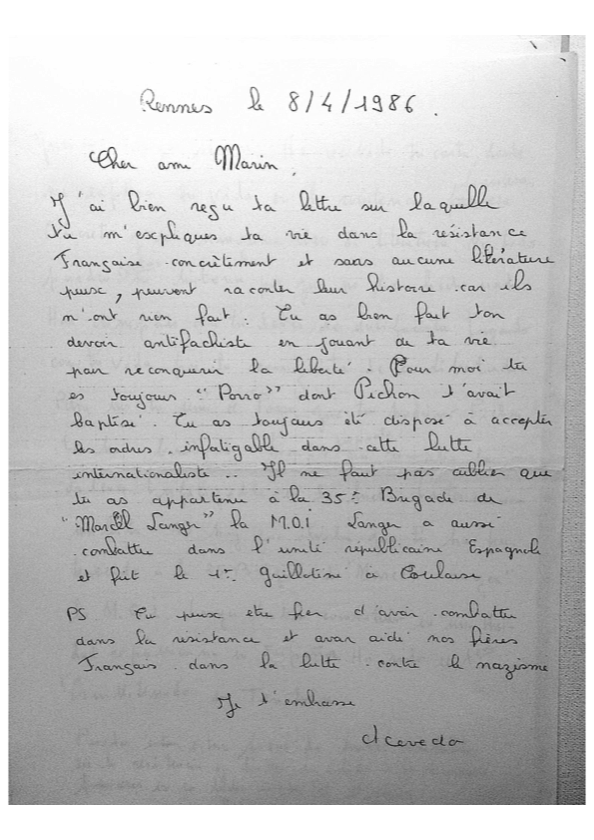 Rennes le 8/4/1986.
Cher ami Marin,
J'ai bien reçu ta lettre sur laquelle
tu m'expliques ta vie dans la résistance
Française concrètement et sans aucune litérature
peux, peuvent raconter leur histoire car ils
n'ont rien fait. Tu as bien fait ton
devoir antifachiste en jouant de ta vie
pair reconquerir la liberté. Pour moi tu
es toujours "Porro" dont Pichon t'avait
baptisé. Tu as toujours été disposé à accepter
les ordres, infatigable dans cette lutte
internationaliste.. Il ne faut pas oublier que
tu as appartenu à la 35e Brigade de
"Marcel Langer" la M.O.i Langer a aussi
combattu dans l'unité républicaine Espagnole
et fut le 1er guillotiné a Toulouse
PS Tu peux etre fier d'avoir combattu
dans la resistance et avoir aidé nos frères
Français dans la lutte contre le nazisme
Je t'embrasse
Acevedo